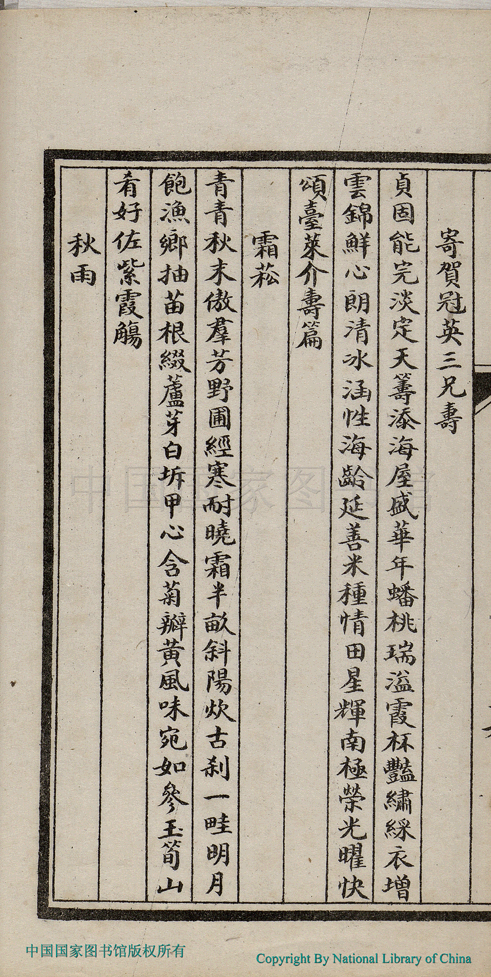 寄賀冠英三兄壽
貞固能完淡定天籌添海屋盛華年蟠桃瑞溢霞杯豔繡綵衣增
雲錦鮮心朗清冰涵性海齡延善米種情田星輝南極榮光曜快
頌臺萊介壽篇
霜菘
青青秋末傲羣芳野圃經寒耐曉霜半畝斜陽炊古刹一畦明月
飽漁鄉抽苗根綴蘆芽白坼甲心含菊瓣黃風味宛如參玉筍山
肴好佐紫霞觴
秋雨
中国国家图书馆
中国国家图书馆版权所有
Copyright By National Library of China